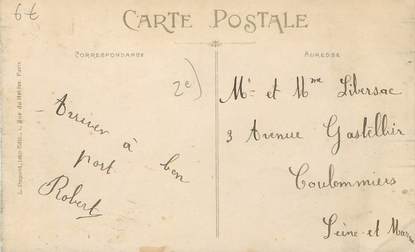 6€
CARTE POSTALE
CORRESPONDANCE
ADRESSE
2e)
Arriver à bon
port
Robert
Mr et Mme Libersac
3 Avenue Gastellier
Coulommiers
Seine et Mar